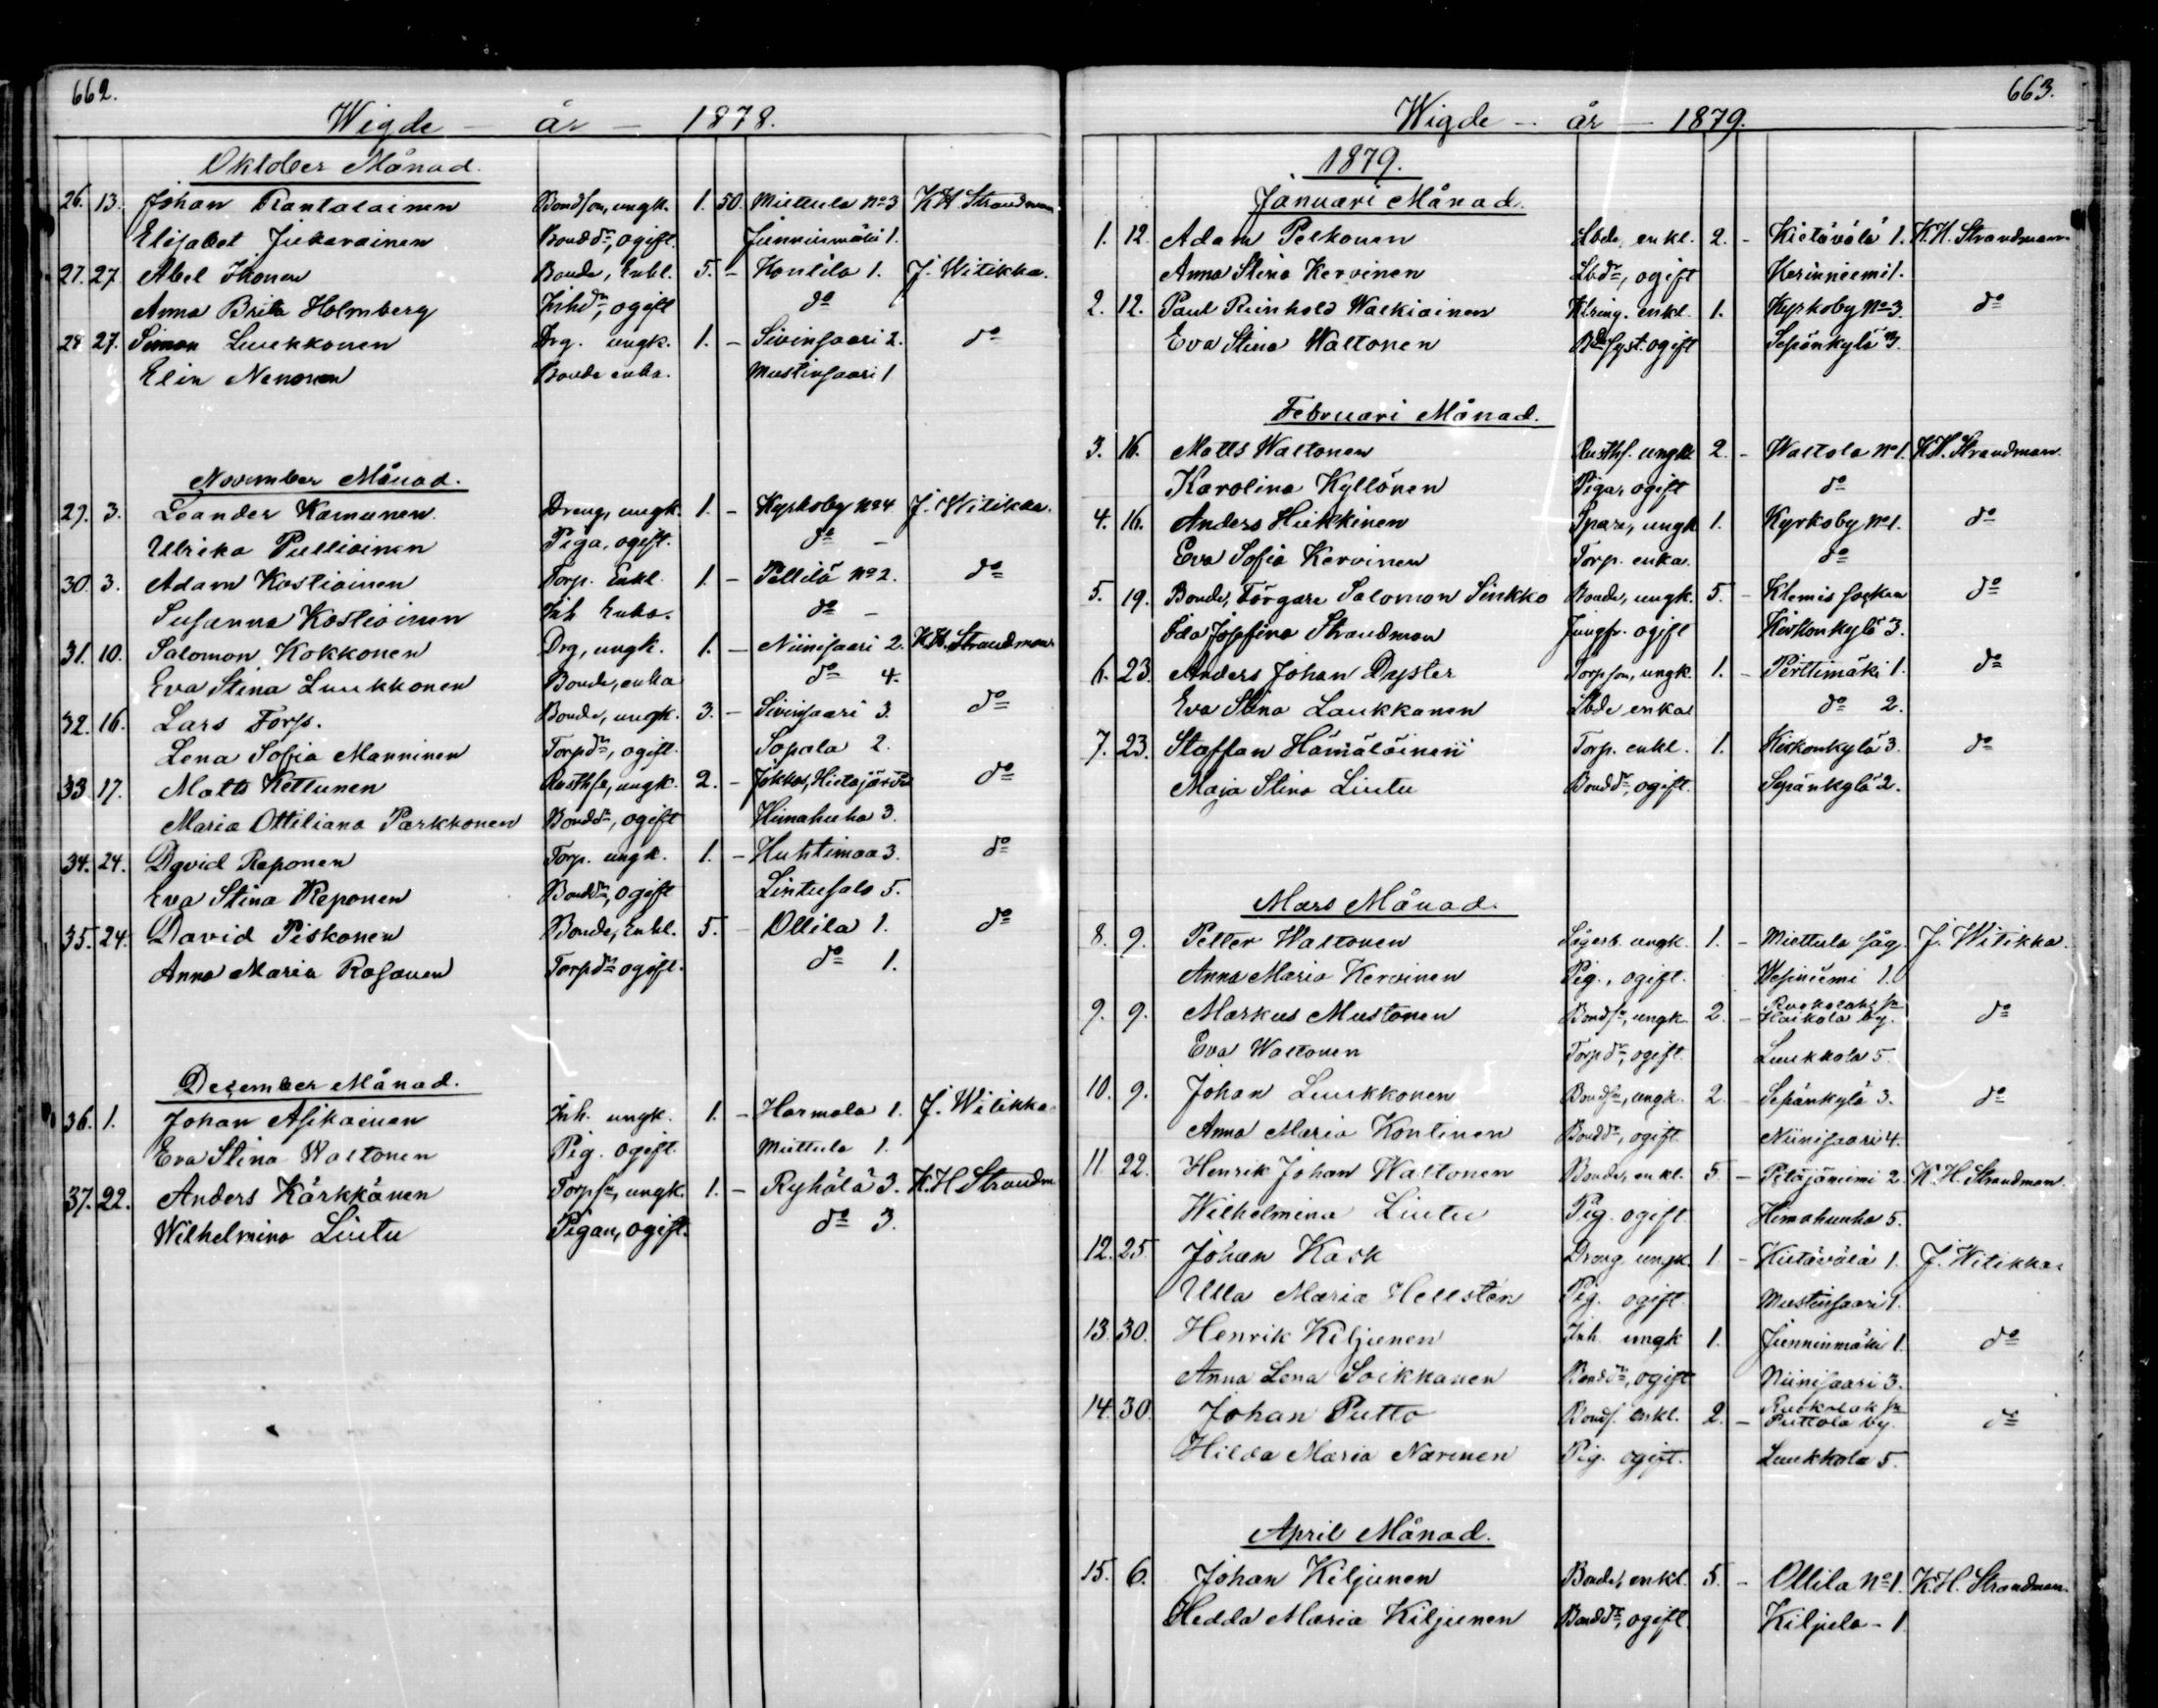 662.
Wigde - år - 1878.
Oktober Månad.
26. 13. Johan Rantalainen Bondson, ungk. 1. 50. Miettula No 3 K.H. Strandman
Elisabet Jukarainen Bonddr, ogift. Junninmäki 1.
27. 27 Abel Ikonen Bonde, Enkl. 5. - Konlila 1. J. Witikka.
Anna Brita Holmberg Inhdr, ogift do
28 27. Simon Luukkonen Drg. ungk. 1. - Sivinsaari 2. do
Elin Nenonen Bonde enka. Mustinsaari 1
November Månad.
29. 3. Leander Kamunen Dreng, ungk. 1. - Kyrkoby No 4 J. Witikka.
Ulrika Pulliainen Piga, ogift. do -
30. 3. Adam Kostiainen Torp. Enkl. 1. - Pellilä No 2. do
Susanna Kostiainen Inh Enka. do -
31. 10. Salomon Kokkonen Drg, ungk. 1. - Niinisaari 2. K.H. Strandman
Eva Stina Luukkonen Bonde, enka do 4.
32. 16. Lars Torp. Bonde, ungk. 3. - Sivinsaari 3. do
Lena Sofia Manninen Torpdr, ogift. Sopala 2.
33 17. Matts Kettunen Rusthsn, ungk. 2. - Jokkas, Hietajärvi do
Maria Ottiliana Parkkonen Bonddr, ogift Himahuha 3.
34. 24. David Reponen Torp. ungk. 1. - Huhtimaa 3. do
Eva Stina Reponen Bonddr, ogift Lintusalo 5.
35. 24. David Piskonen Bonde, Enkl. 5. - Ollila 1. do
Anna Maria Rosanen Torpdr ogift. do 1.
December Månad.
36. 1. Johan Asikainen Inh. ungk. 1. - Harmala 1. J. Witikka
Eva Stina Waltonen Pig. ogift. Miettula 1.
37. 22. Anders Kärkkänen Torpsn, ungk. 1. - Ryhälä 3. K.H Strandm
Wilhelmina Liutu Pigan, ogift. do 3.
663.
Wigde - år - 1879.
1879.
Januari Månad.
1. 12. Adam Pelkonen Lbde, enkl. 2. - Kietävälä 1. K.H. Strandman
Anna Stina Kervinen Lbdr, ogift Kerinniemi 1.
2. 12. Paul Reinhold Walkiainen enkl. 1. Kyrkoby No 3. do
Eva Stina Waltonen Bdesyst. ogift Sepänkylä 3.
Februari Månad.
3. 16. Matts Waltonen Rusths. ungk 2. - Waltola No 1. K.H. Strandman.
Karolina Kyllönen Piga, ogift do
4. 16. Anders Hukkinen ungk 1. Kyrkoby No 1. do
Eva Sofia Kervinen Torp. enka. do
5. 19. Bonde, Färgare Salomon Sinkko Bonde, ungk. 5. - Klemis socken do
Ida Josefina Strandman Jungfr. ogift Kirkonkylä 3.
6. 23. Anders Johan Dyster Torpson, ungk. 1. - Perttimäki 1. do
Eva Stina Laukkanen Lbde enka do 2.
7. 23. Staffan Hämäläinen Torp. enkl. 1. Kirkonkylä 3. do
Maja Stina Liutu Bonddr, ogift. Sepänkylä 2.
Mars Månad.
8. 9. Petter Waltonen Sågarb. ungk. 1. - Miettula såg. J. Witikka.
Anna Maria Kervinen Pig., ogift. Wesiniemi 1.
9. 9. Markus Mustonen Bondsn, ungk. 2. - Ruokolaks sn Haikola by. do
Eva Waltonen Torpdr, ogift. Luukkola 5.
10. 9. Johan Luukkonen Bondsn, ungk. 2 - Sepänkylä 3. do
Anna Maria Kontinen Bonddr, ogift. Niinisaari 4.
11 22. Henrik Johan Waltonen Bonde, enkl. 5 - Pitäjäniemi 2. K.H. Strandman.
Wilhelmina Liutu Pig. ogift Himahuuha 5.
12. 25. Johan Kask Dreng ungk. 1 - Kietävälä 1. J. Witikka
Ulla Maria Hellstén Pig. ogift. Mustinsaari 1.
13. 30. Henrik Kiljunen Inh. ungk 1. Junninmäki 1. do
Anna Lena Soikkanen Bonddr, ogift Niinisaari 3.
14. 30. Johan Putto Bonds. enkl. 2. - Ruokolak sn Puttola by. do
Hilda Maria Narinen Pig. ogift. Luukkola 5.
April Månad.
15. 6. Johan Kiljunen Bonde, enkl. 5. - Ollila No 1. K.H. Strandman.
Hedda Maria Kiljunen Bonddr, ogift Kiljula - 1